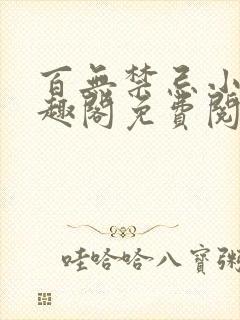 百無禁忌小
趣閣免費閱
哇哈哈八寶粥